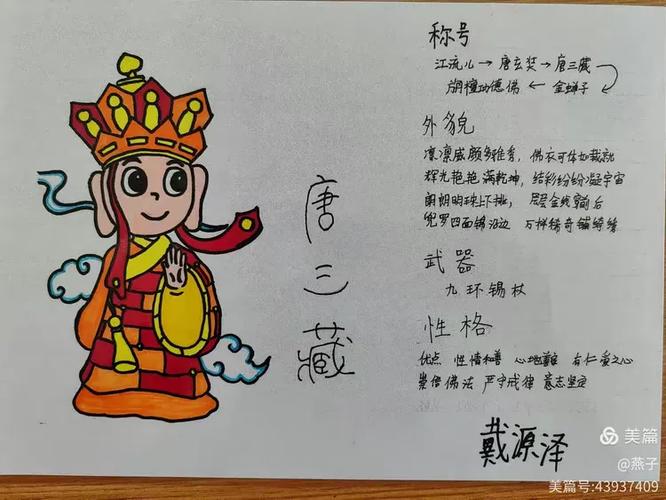 称号
江流儿→唐玄奘→唐三藏
旃檀功德佛←金蝉子
外貌
凛凛威颜多雅秀，佛衣可体如裁就
辉光艳艳满乾坤，结彩纷纷凝宇宙
朗朗明珠上下排，层层金线穿前后
兜罗四面锦沿边 万样稀奇铺绮绣
武器
九环锡杖
性格
优点 性情和善 心地 有仁爱之心
崇信佛法 严守戒律 意志坚定
唐三藏
戴源泽
美篇
@燕子
美篇号:43937409